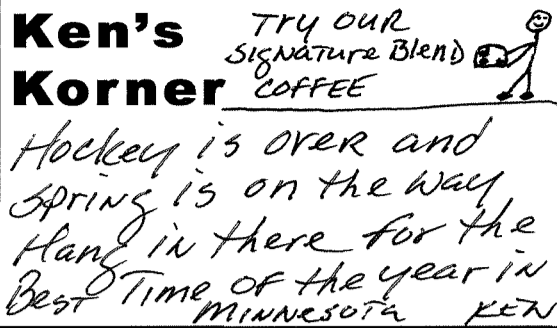 Ken's
Korner
Try our
Signature Blend
Coffee
Hockey is over and
Spring is on the way
Hang in there for the
Best Time of the year in
Minnesota Ken